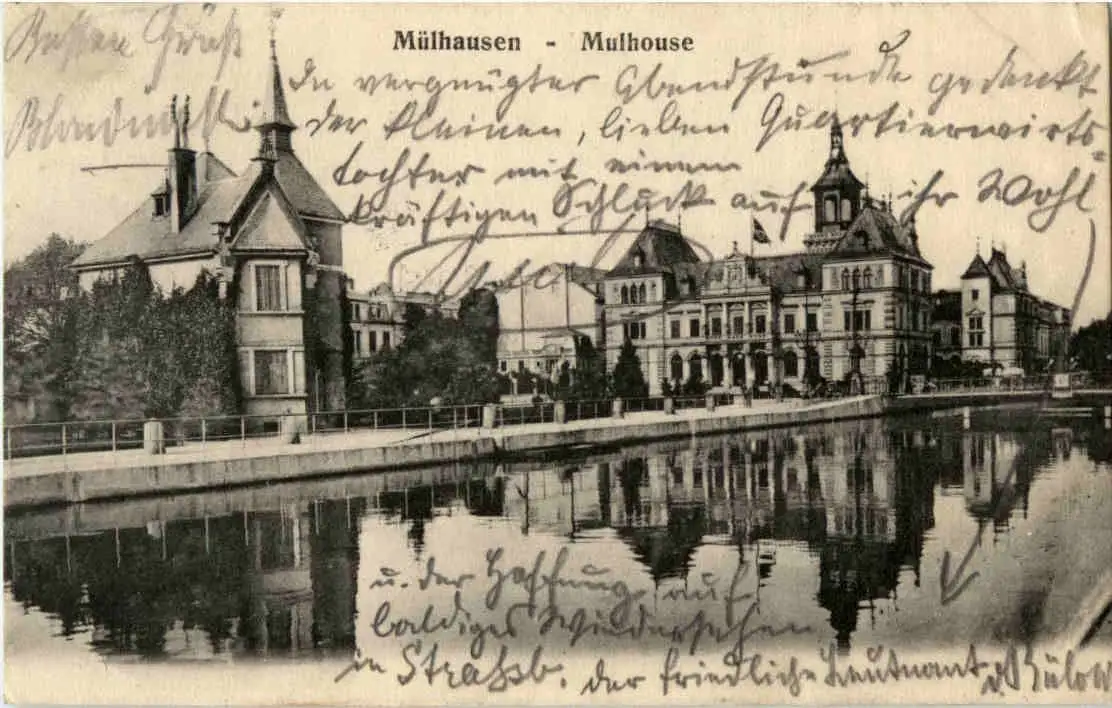 Mülhausen - Mulhouse
Besten Gruß
In vergnügter Abendstunde gedenkt
der kleinen, lieben Quartierwirts-
tochter mit einem
kräftigen Schluck auf ihr Wohl
u. der Hoffnung auf
baldiges Wiedersehen
in Straßb. der friedliche Leutnant Bülow